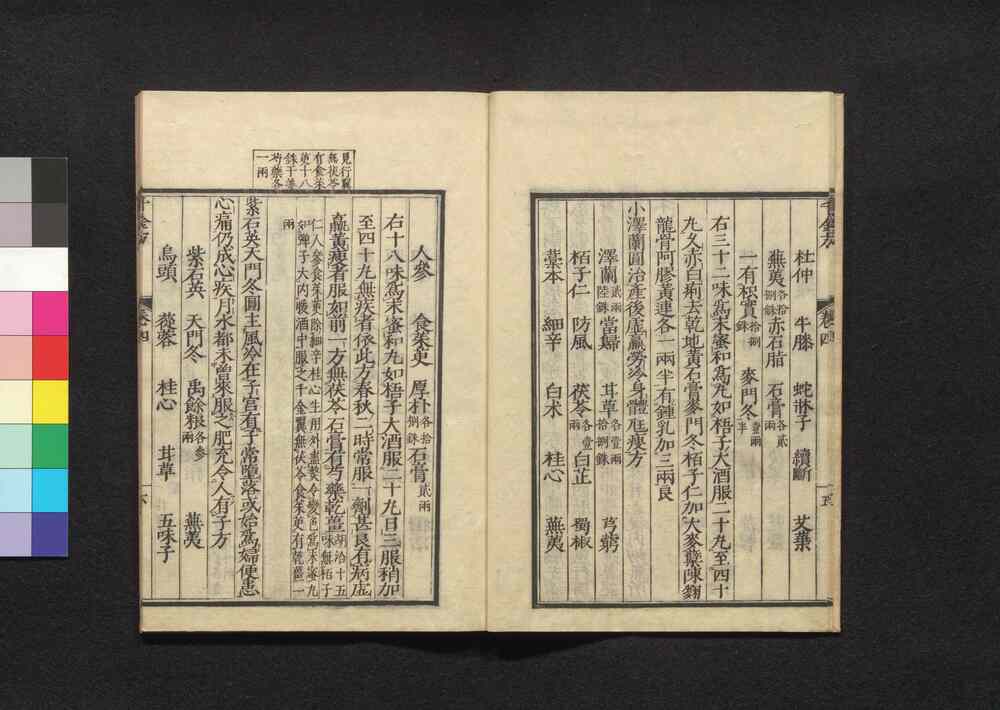 杜仲 牛膝 蛇牀子 續斷 艾葉
蕪荑各拾捌銖 赤石脂 石膏各貳兩
一有枳實拾捌銖 麥門冬壹兩半
右三十二味爲末蜜和爲丸如梧子大酒服二十九至四十
九久赤白痢去乾地黄石膏麥門冬栢子仁加大麥糵陳麴
龍骨阿膠黄連各一兩半有鍾乳加三兩良
小澤蘭圓治產後虛羸勞冷身體尫瘦方
澤蘭貳兩陸銖 當歸 甘草各壹兩拾捌銖 芎藭
栢子仁 防風 茯苓各壹兩 白芷 蜀椒
藁本 細辛 白术 桂心 蕪荑
人參 食茱萸 厚朴各拾捌銖 石膏貳兩
右十八味爲末蜜和丸如梧子大酒服二十九日三服稍加
至四十九無疾者依此方春秋二時常服一劑甚良有病虛
羸黄瘦者服如前一方無茯苓石膏有芍藥乾薑胡洽十五味無栢子
仁人參食茱萸除細辛桂心生用外盡熬令變色爲末蜜丸
如彈子大内暖酒中服之千金翼無茯苓食茱萸有乾薑一
兩
紫石英天門冬圓主風冷在子宮有子常墮落或始爲婦便患
心痛仍成心疾月水都未曾來服之肥充令人有子方
紫石英 天門冬 禹餘粮各參兩 蕪荑
烏頭 蓯蓉 桂心 甘草 五味子
見行翼
無茯苓
有食茱
萸十八
銖干薑
芍藥各
一兩
千金方
卷四